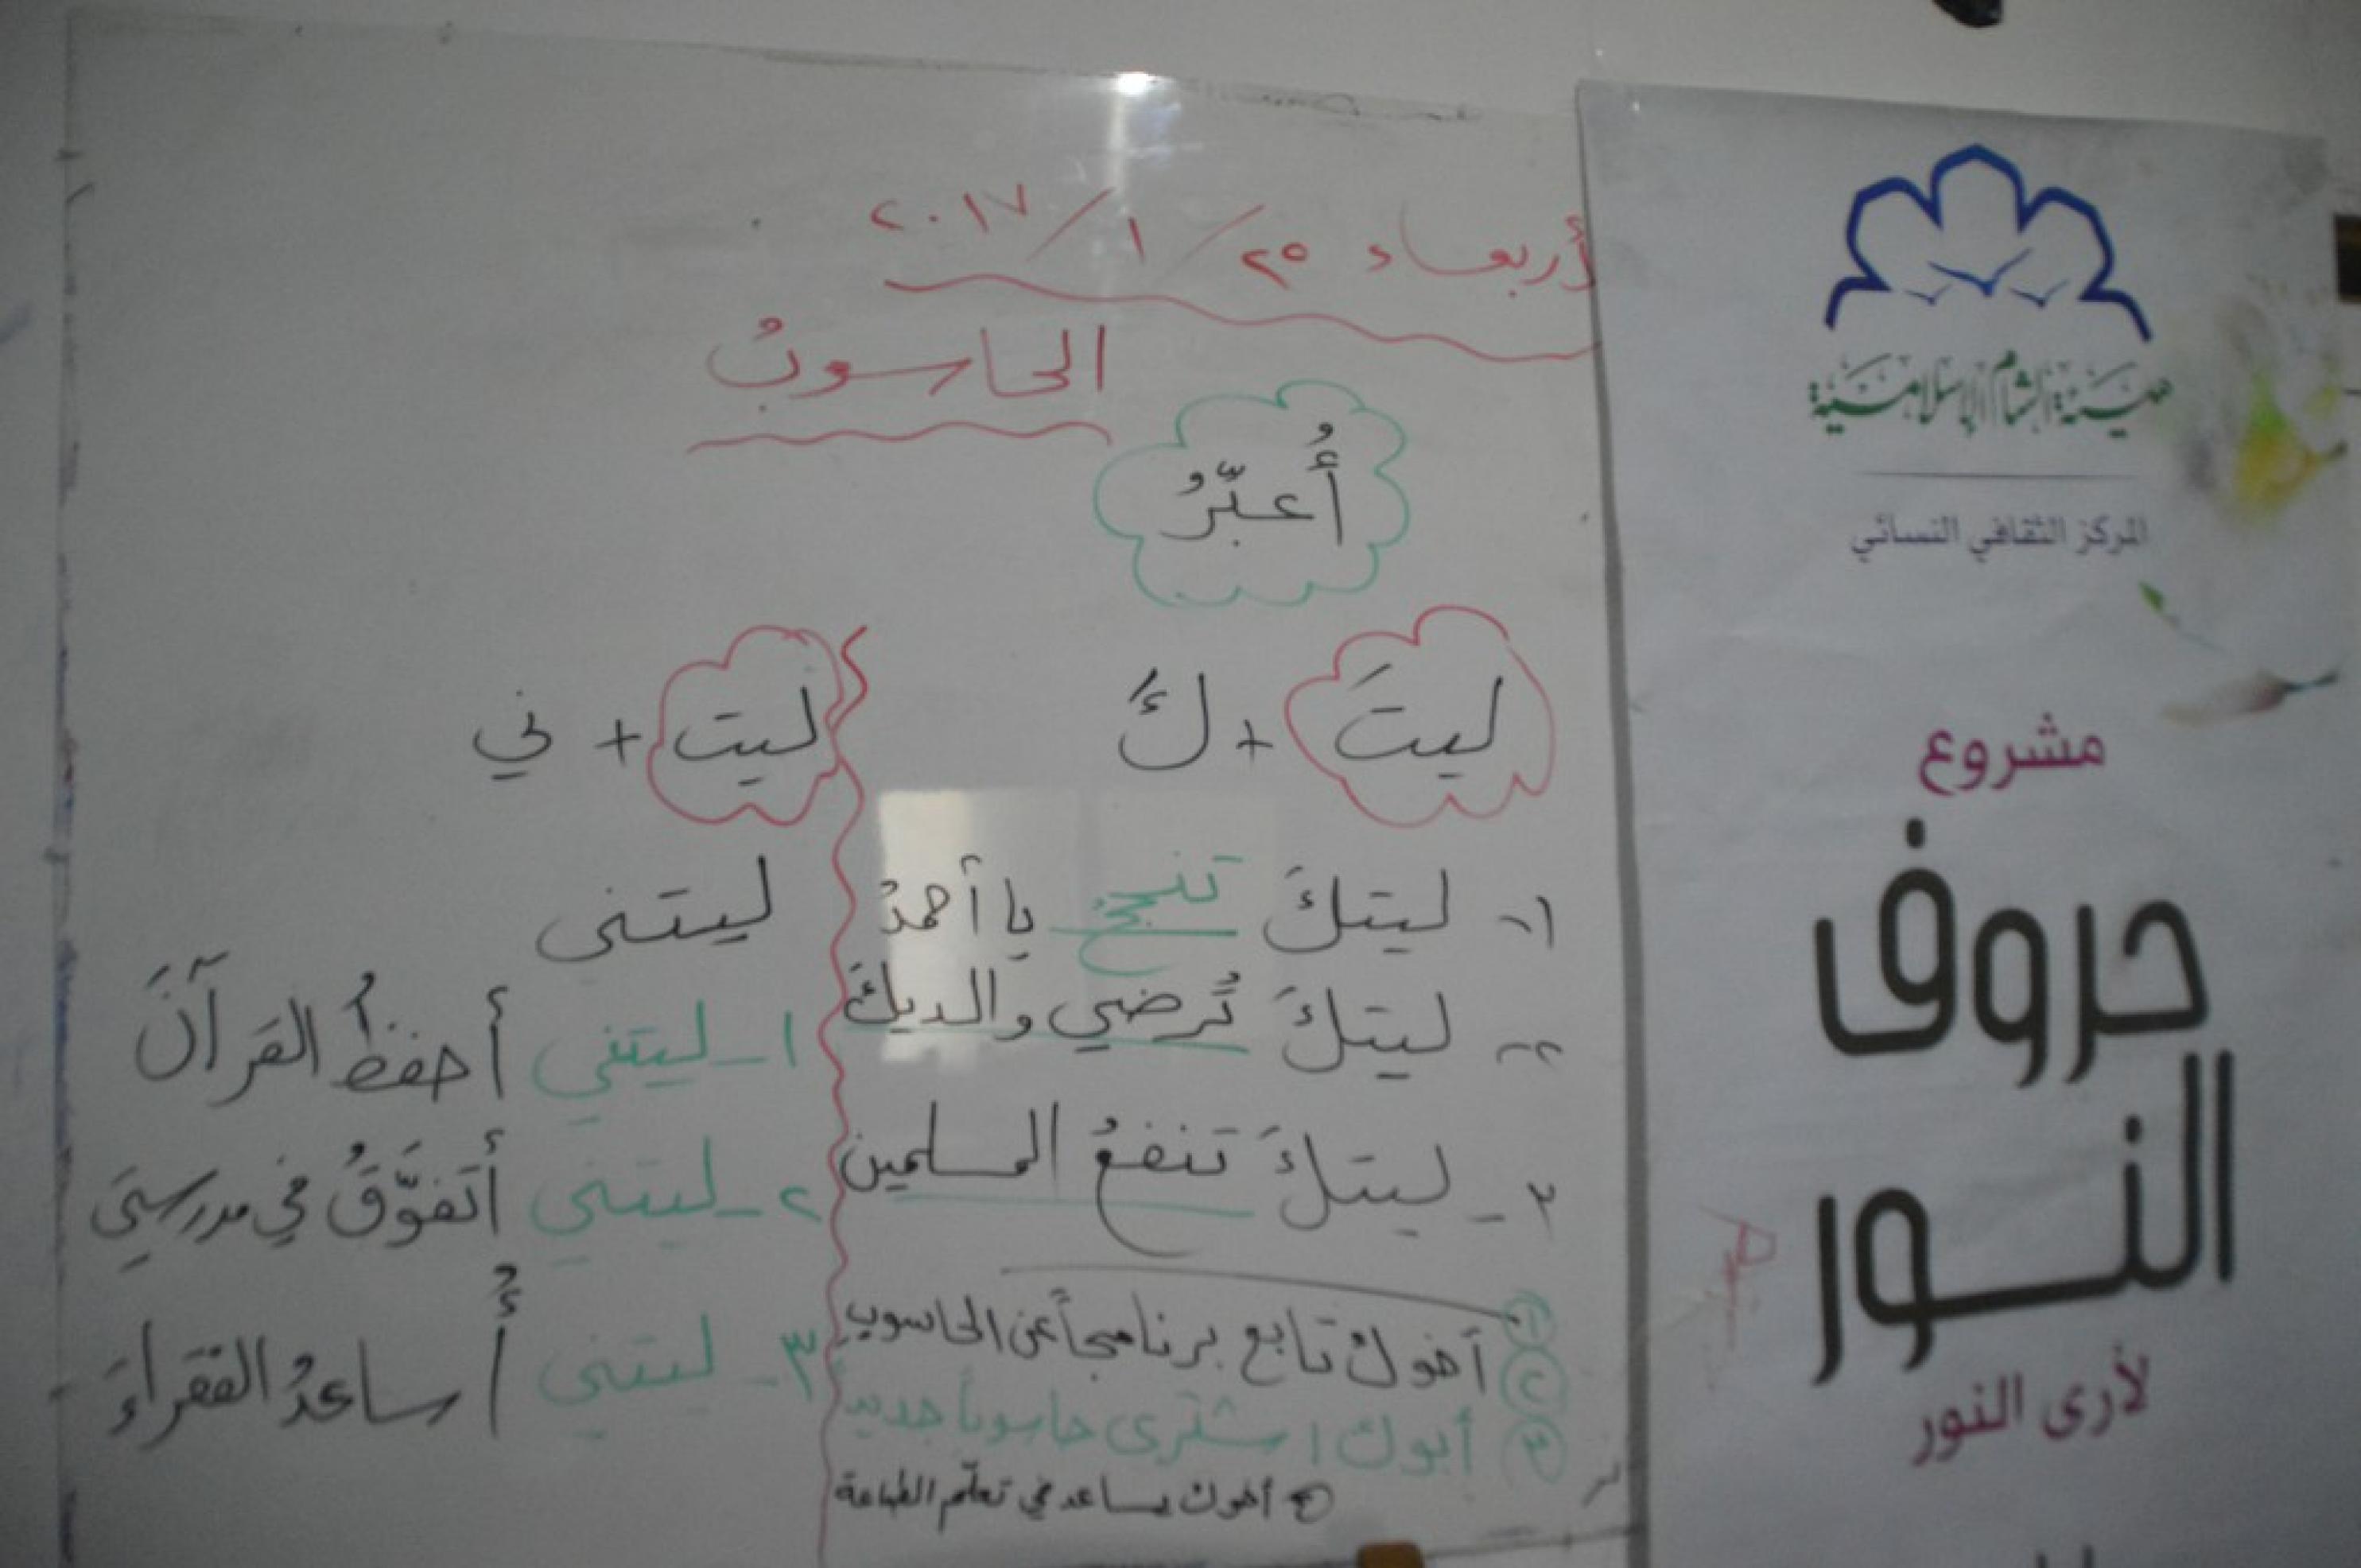 أربعاء ٢٥/ ١/ ٢٠١٧
الحاسوبُ
أُعبّرُ
ليتَ + كَ
١- ليتكَ تنجحُ يا أحمدُ
٢- ليتكَ تُرضي والديكَ
٣- ليتكَ تنفعُ المسلمين
١ أخوك تابع برنامجاً عن الحاسوب
٢
٣ أبوك اشترى حاسوباً جديد
أخوك يساعد في تعلّم الطباعة
ليت + ني
ليتني
١- ليتني أحفظُ القرآنَ
٢- ليتني أتفوَّقُ في مدرستي
٣- ليتني أُساعدُ الفقراءَ
هيئة الشام الإسلامية
المركز الثقافي النسائي
مشروع
حروف
النور
لأرى النور